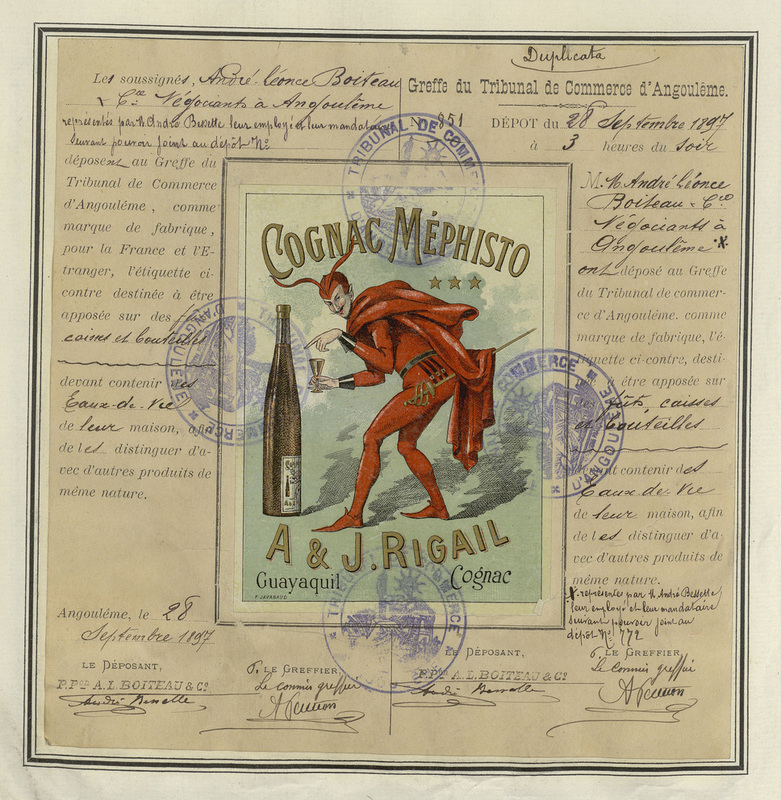 Duplicata
Les soussignés, André-Léonce Boiteau
& Cie Négociants à Angoulême
représentés par M. André Bessette leur employé et leur mandataire
suivant pouvoir joint au dépôt No
déposent au Greffe du
Tribunal de Commerce
d'Angoulême, comme
marque de fabrique,
pour la France et l'E-
tranger, l'étiquette ci-
contre destinée à être
apposée sur des
caisses et bouteilles
devant contenir des
Eaux-de-Vie
de leur maison, afin
de les distinguer d'a-
vec d'autres produits de
même nature.
Angoulême, le 28
Septembre 1897
LE DÉPOSANT,
P.Pon A.L. BOITEAU & Co
André Bessette
P. LE GREFFIER,
Le commis greffier
COGNAC MÉPHISTO
A & J. RIGAIL
Guayaquil
Cognac
F. JAVANAUD
TRIBUNAL DE COMMERCE
D'ANGOULEME
Greffe du Tribunal de Commerce d'Angoulême.
No 851 DÉPOT du 28 Septembre 1897
à 3 heures du soir
M.M. André Léonce
Boiteau & Cie
Négociants à
Angoulême X
ont déposé au Greffe
du Tribunal de commer-
ce d'Angoulême. comme
marque de fabrique, l'é-
tiquette ci-contre, desti-
née à être apposée sur
fûts, caisses
et bouteilles
devant contenir des
Eaux-de-Vie
de leur maison, afin
de les distinguer d'a-
vec d'autres produits de
même nature.
X représentés par M. André Bessette
leur employé et leur mandataire
suivant pouvoir joint au
dépôt No 772
LE DÉPOSANT,
P.Pon A.L. BOITEAU & Co
André Bessette
P. LE GREFFIER,
Le commis greffier